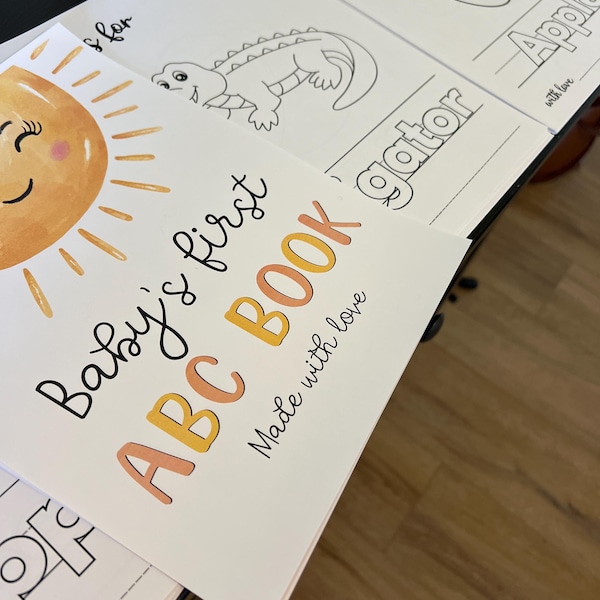 Baby's first
ABC BOOK
Made with love
s for
gator
Appl
with love
pp